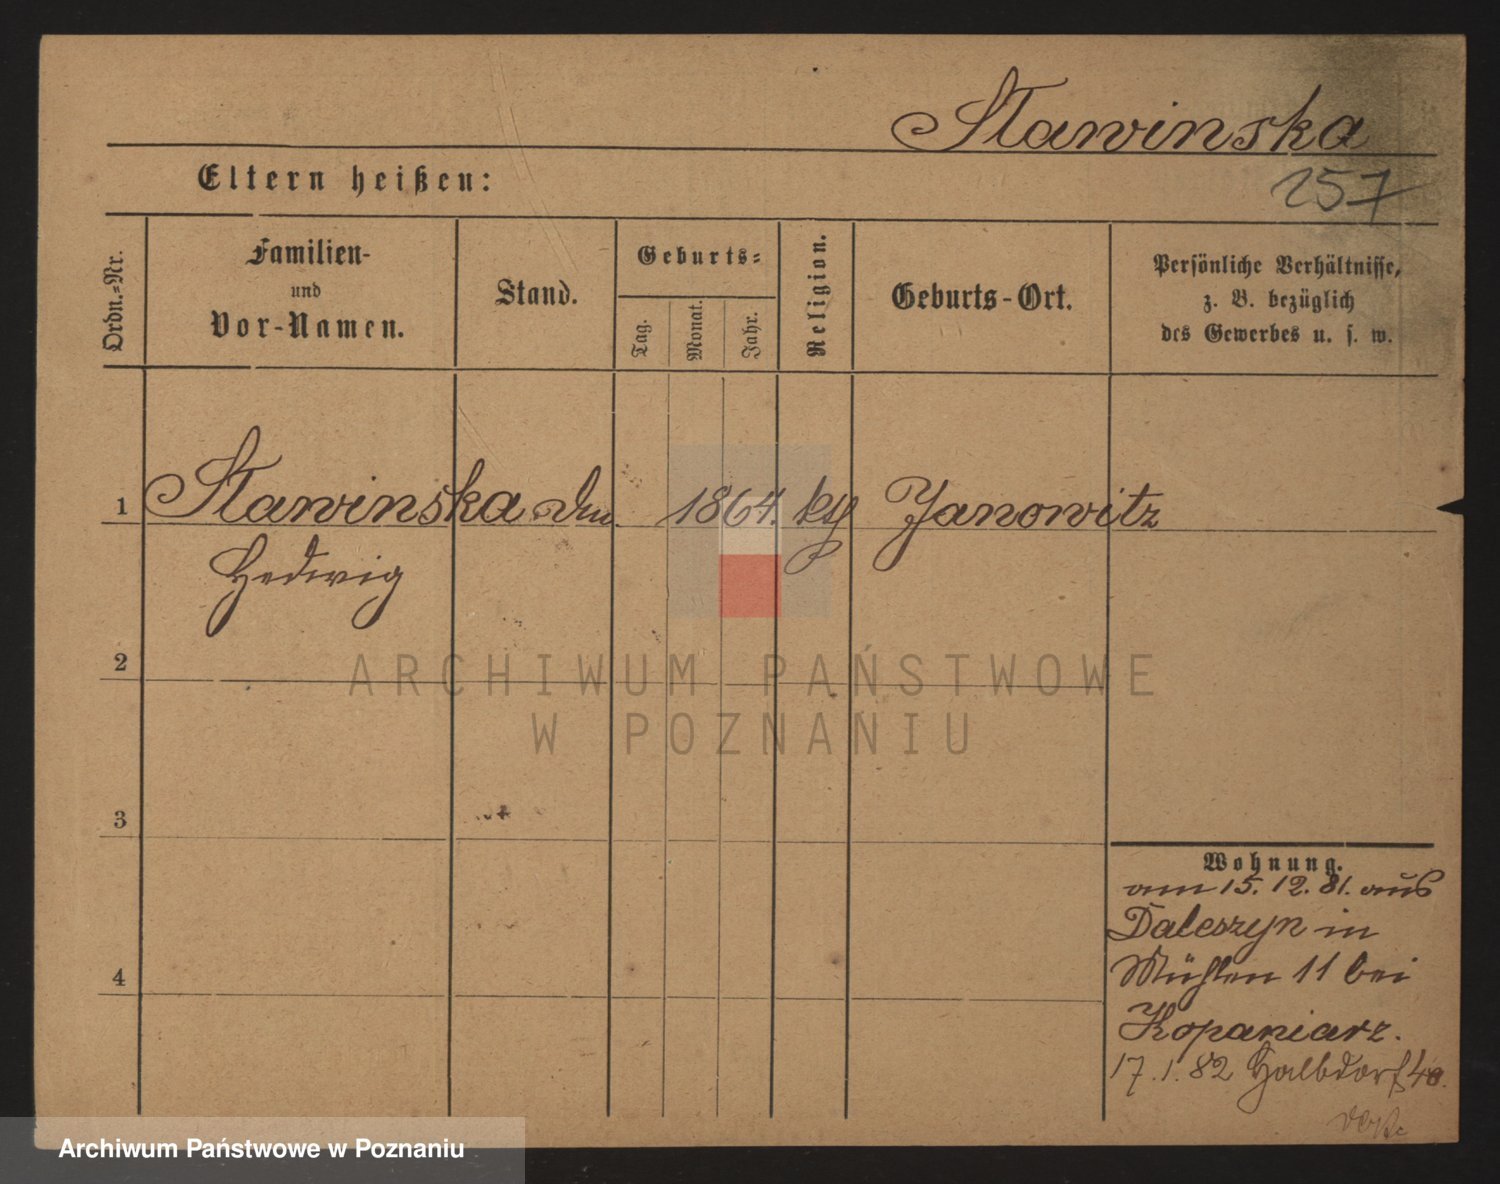 Stawinska
257
Eltern heißen:
Ordn.-Nr.
Familien-
und
Vor-Namen.
Stand.
Geburts-
Tag.
Monat.
Jahr.
Religion.
Geburts-Ort.
Persönliche Verhältnisse,
z. B. bezüglich
des Gewerbes u. s. w.
1 Stawinska 1864. Janowitz
Hedwig
2
ARCHIWUM PAŃSTWOWE
W POZNANIU
3
Wohnung.
am 15. 12. 81. aus
Daleszyn in
Mühlen 11 bei
Kopaniarz.
4
17. 1. 82 Halbdorf
Archiwum Państwowe w Poznaniu